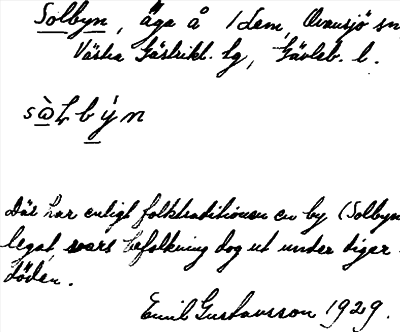 Solbyn, äga å 1 dem, Ovansjö sn
Västra Gästrikl. hg, Gävleb. l.
sò̱Lbýn
Där har enligt folktraditionen en by (Solbyn
legat, vars befolkning dog ut under diger-
döden.
Emil Gustavsson 1929.